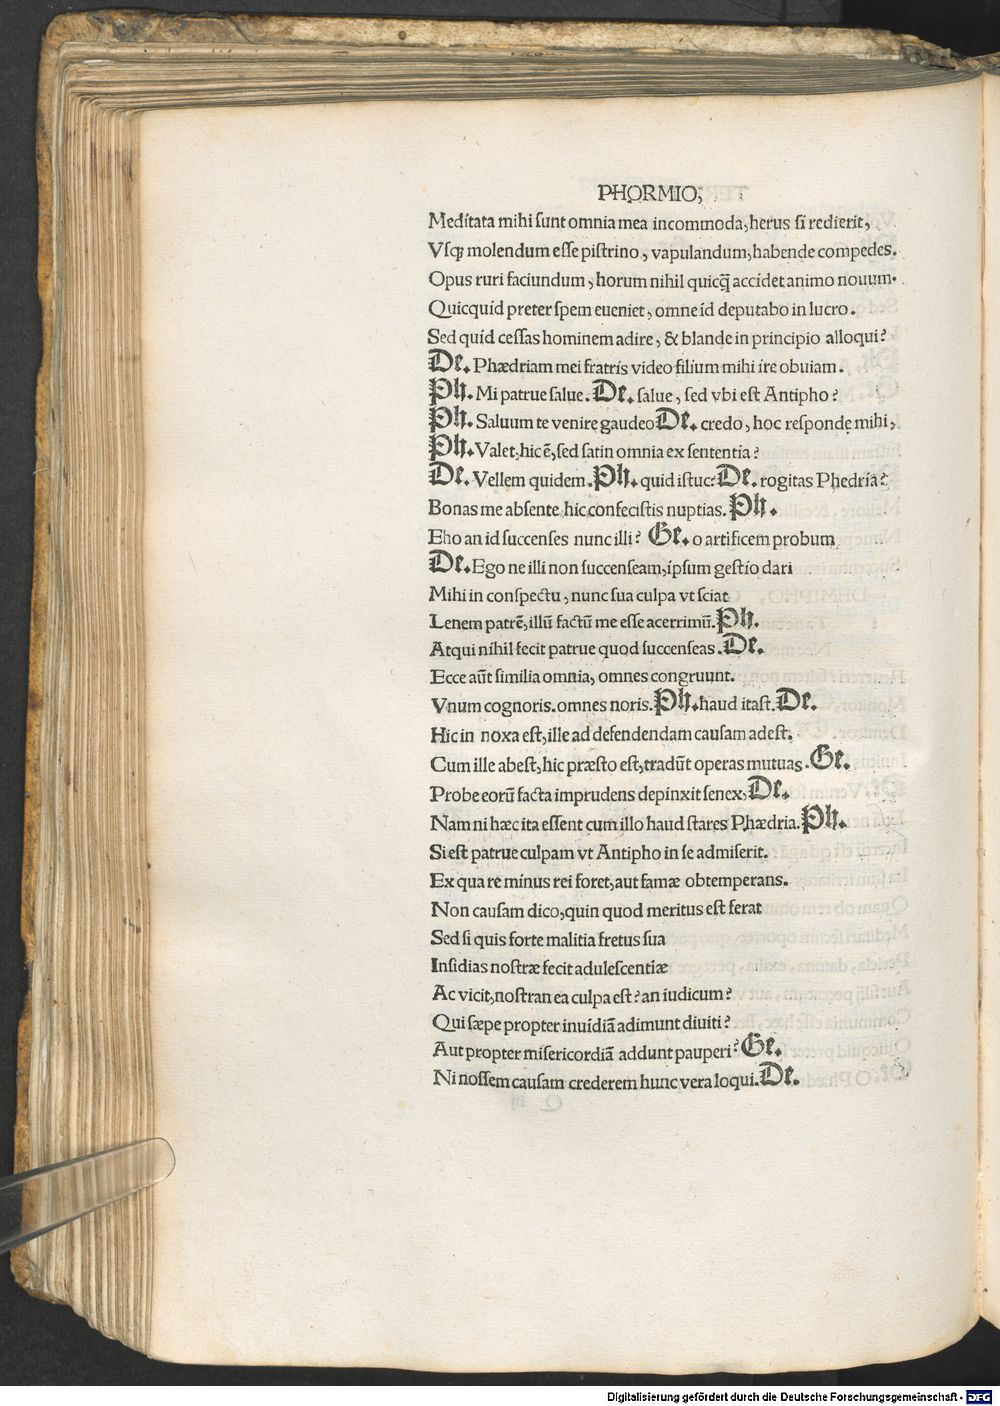 PHORMIO,
Meditata mihi sunt omnia mea incommoda, herus si redierit,
Vsqꝫ molendum esse pistrino, vapulandum, habende compedes.
Opus ruri faciundum, horum nihil quicq̃ accidet animo nouum.
Quicquid preter spem eueniet, omne id deputabo in lucro.
Sed quid cessas hominem adire, & blande in principio alloqui?
De. Phædriam mei fratris video filium mihi ire obuiam.
Ph. Mi patrue salue. De. salue, sed vbi est Antipho?
Ph. Saluum te venire gaudeo De. credo, hoc responde mihi,
Ph. Valet, hic ē, sed satin omnia ex sententia?
De. Vellem quidem. Ph. quid istuc? De. rogitas Phedria?
Bonas me absente hic confecistis nuptias. Ph.
Eho an id succenses nunc illi? Ge. o artificem probum
De. Ego ne illi non succenseam, ipsum gestio dari
Mihi in conspectu, nunc sua culpa vt sciat
Lenem patrē, illū factū me esse acerrimū. Ph.
Atqui nihil fecit patrue quod succenseas. De.
Ecce aūt similia omnia, omnes congruunt.
Vnum cognoris. omnes noris. Ph. haud itast. De.
Hic in noxa est, ille ad defendendam causam adest.
Cum ille abest, hic præsto est, tradūt operas mutuas. Ge.
Probe eorū facta imprudens depinxit senex, De.
Nam ni hæc ita essent cum illo haud stares Phædria. Ph.
Si est patrue culpam vt Antipho in se admiserit.
Ex qua re minus rei foret, aut famæ obtemperans.
Non causam dico, quin quod meritus est ferat
Sed si quis forte malitia fretus sua
Insidias nostræ fecit adulescentiæ
Ac vicit, nostran ea culpa est? an iudicum?
Qui sæpe propter inuidiā adimunt diuiti?
Aut propter misericordiā addunt pauperi? Ge.
Ni nossem causam crederem hunc vera loqui. De.
Digitalisierung gefördert durch die Deutsche Forschungsgemeinschaft - DFG